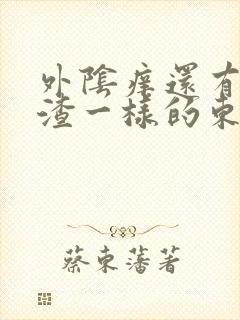 外陰痒還有
渣一樣的東
蔡東藩著